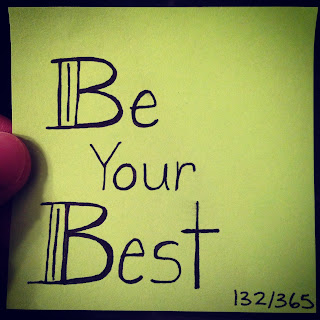 Be
Your
Best
132/365